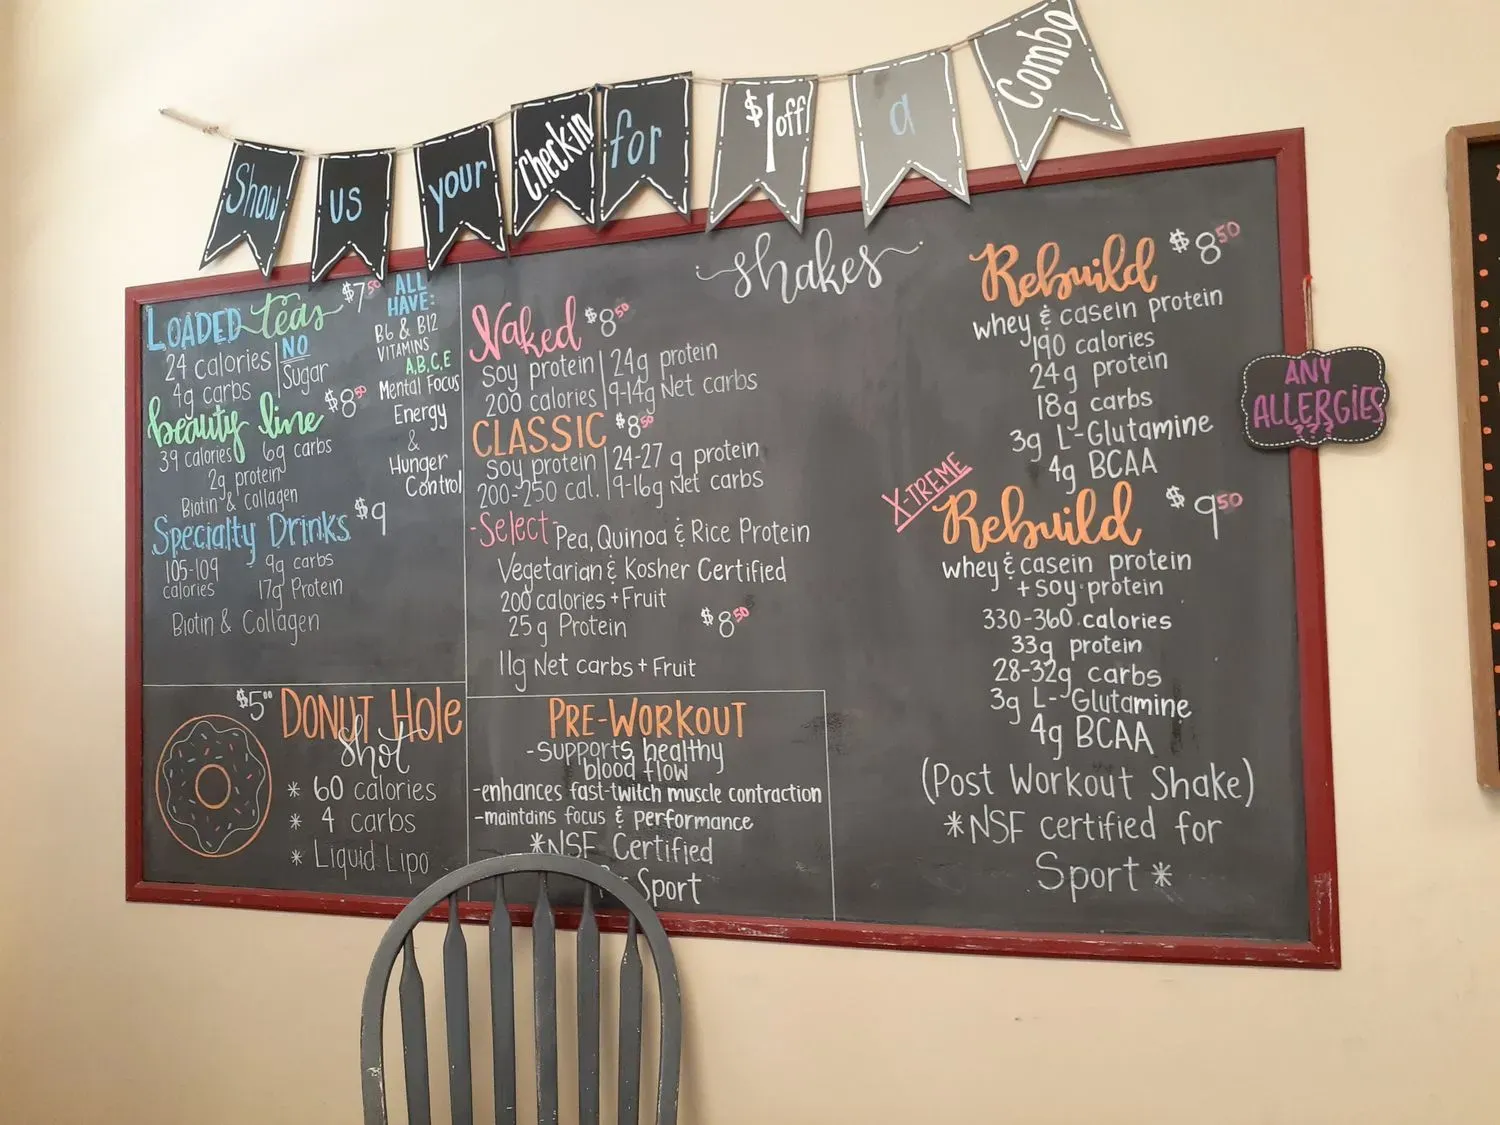 Show us your Checkin for $1 off a Combo
LOADED teas $7.50
24 calories
4g carbs
NO
Sugar
beauty line $8.50
39 calories 6g carbs
2g protein
Biotin & Collagen
Specialty Drinks $9
105-109 9g carbs
calories 17g Protein
Biotin & Collagen
ALL
HAVE:
B6 & B12
VITAMINS
A,B,C,E
Mental Focus
Energy
&
Hunger
Control
$5.00 DONUT Hole
shot
* 60 calories
* 4 carbs
* Liquid Lipo
shakes
Naked $8.50
Soy protein | 24g protein
200 calories | 9-14g Net carbs
CLASSIC $8.50
Soy protein | 24-27 g protein
200-250 cal. | 9-16g Net carbs
-Select- Pea, Quinoa & Rice Protein
Vegetarian & Kosher Certified
200 calories + Fruit
25g Protein $8.50
11g Net carbs + Fruit
PRE-WORKOUT
-Supports healthy
blood flow
-enhances fast-twitch muscle contraction
-maintains focus & performance
*NSF Certified
Sport
Rebuild $8.50
whey & casein protein
190 calories
24g protein
18g carbs
3g L-Glutamine
4g BCAA
X-TREME
Rebuild $9.50
whey & casein protein
+ soy protein
330-360 calories
33g protein
28-32g carbs
3g L-Glutamine
4g BCAA
(Post Workout Shake)
*NSF certified for
Sport*
ANY
ALLERGIES
???